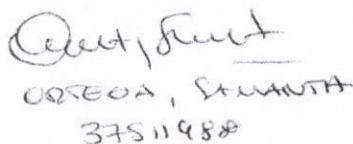 ORTEGA, SAMANTA
37511988